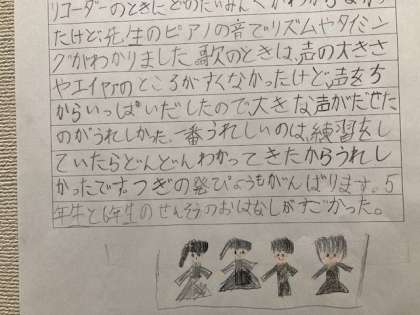 リコーダーのときに
たけど、先生のピアノの音でリズムやタイミン
グがわかりました。歌のときは、声の大きさ
やエイヤのところがすくなかったけど、声をち
からいっぱいだしたので大きな声がだせた
のがうれしかた。一番うれしいのは、練習をし
ていたらどんどんわかってきたからうれし
かったです。つぎの発ぴょうもがんばります。5
年生と6年生のせんそうのおはなしがすごかった。